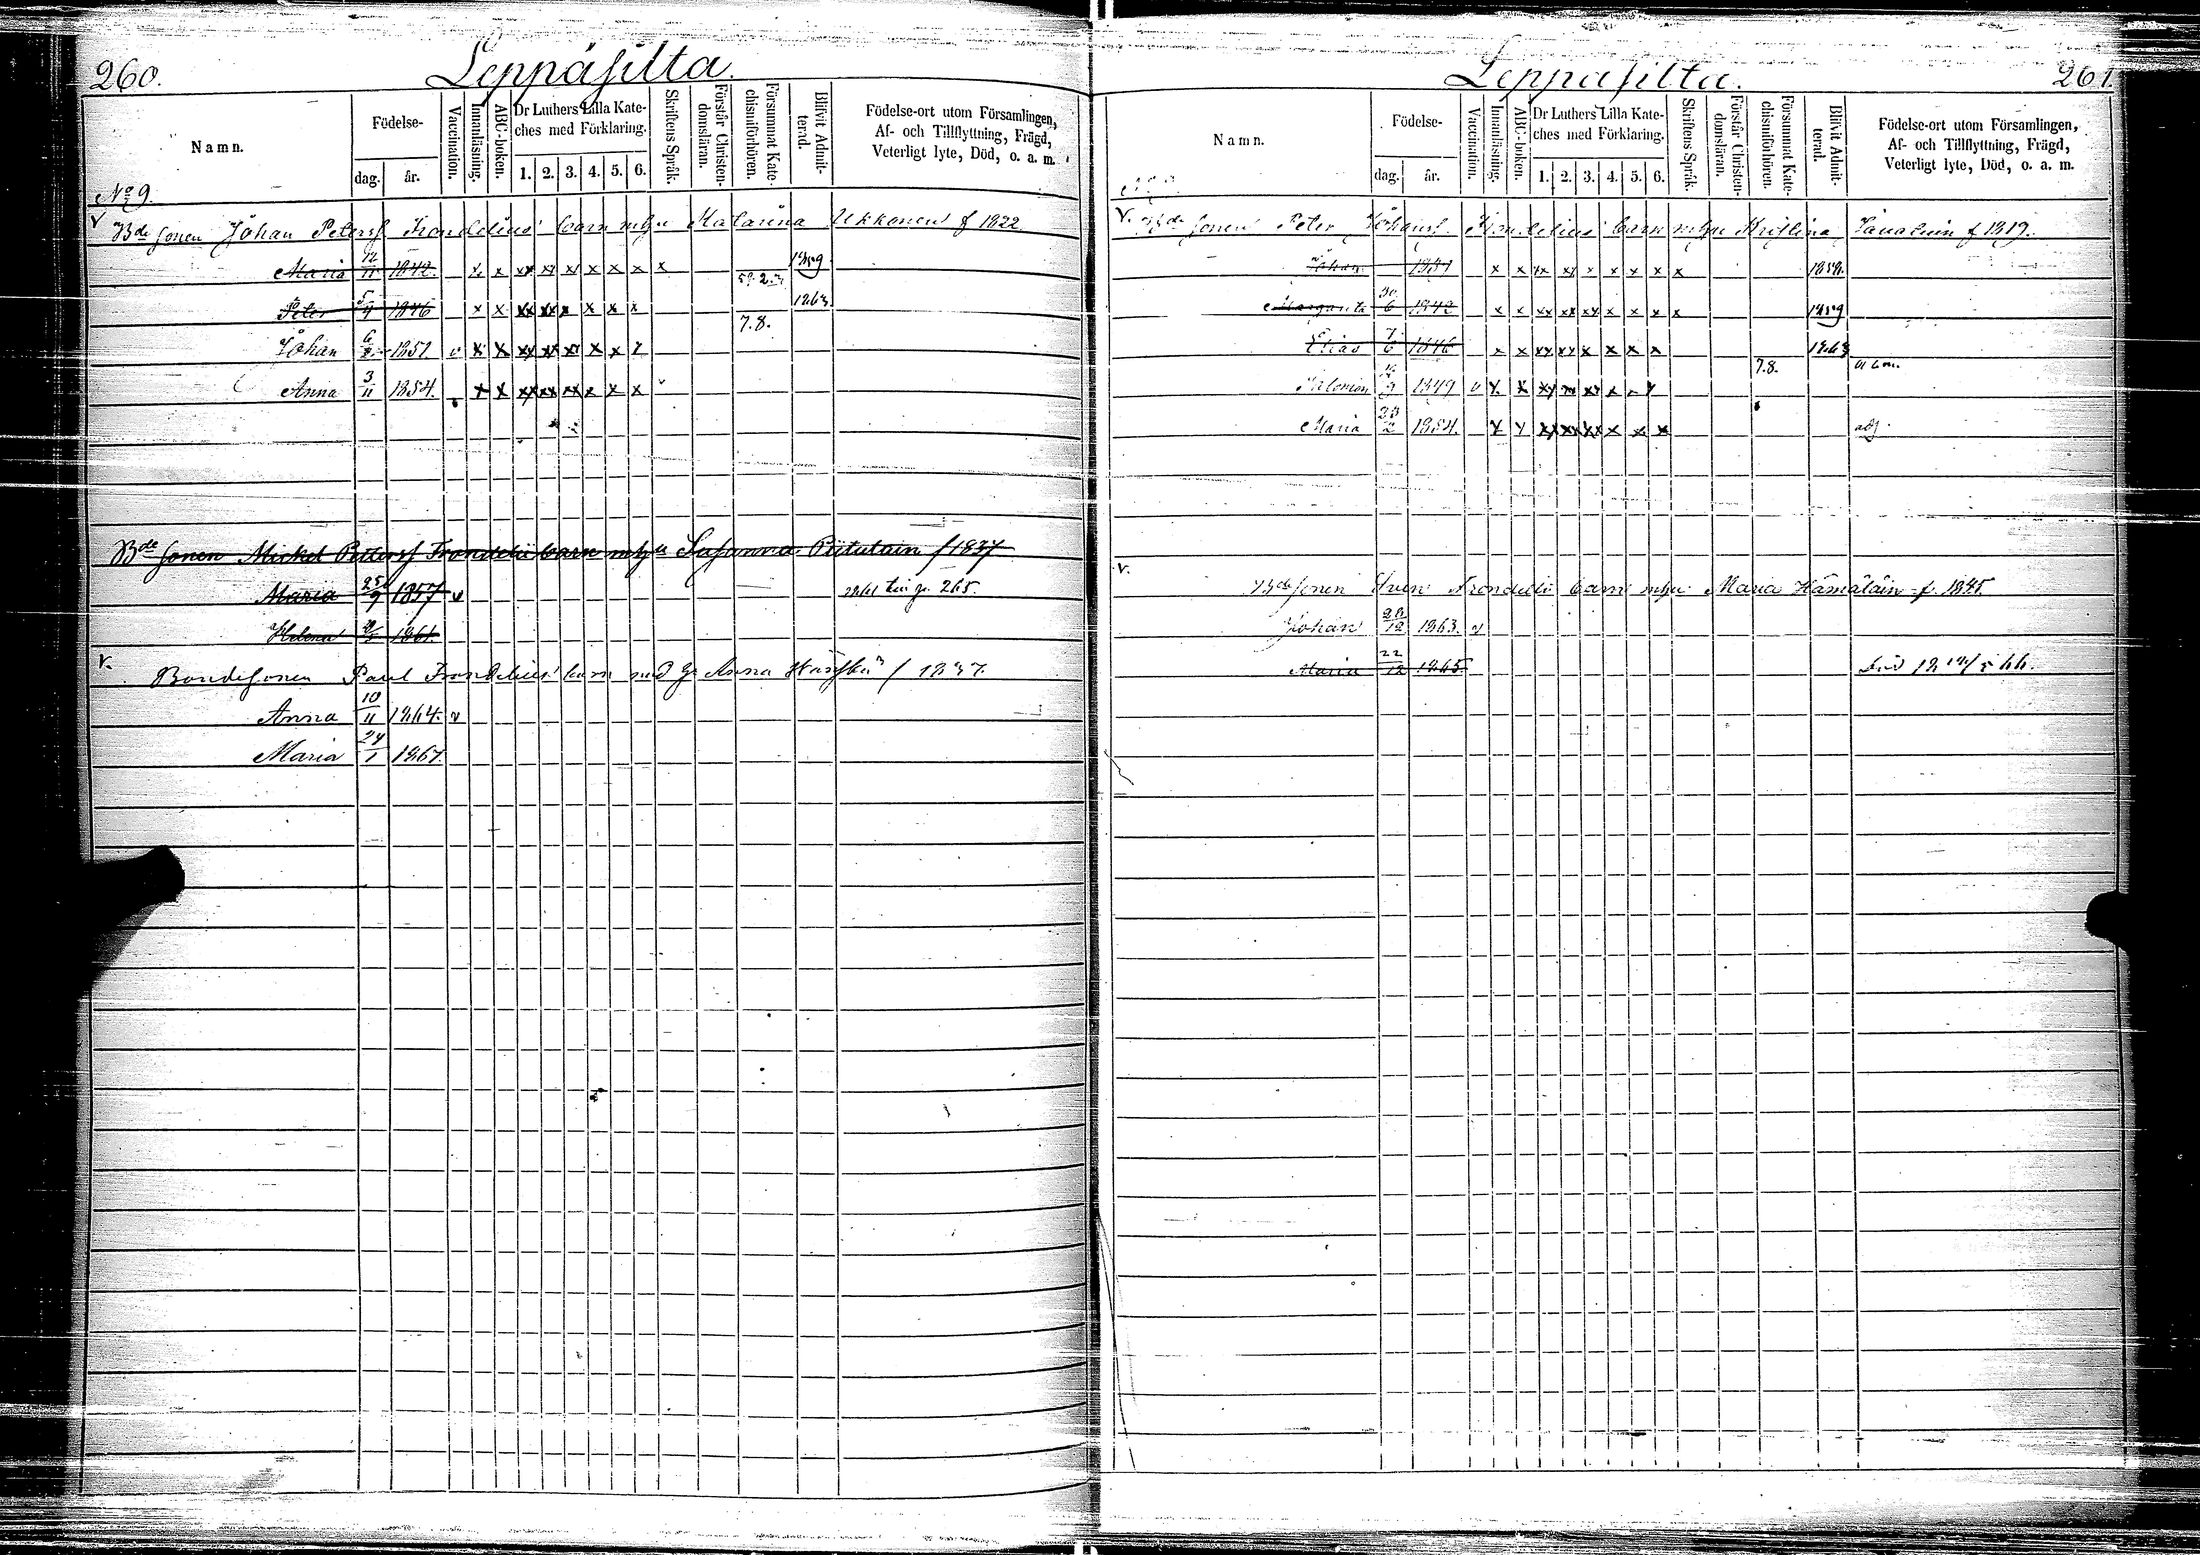 260.
Leppäsilta.
Namn.
Födelse-
dag.
år.
Vaccination.
Innanläsning.
ABC-boken.
Dr Luthers Lilla Kate-
ches med Förklaring.
1. 2. 3. 4. 5. 6.
Skriftens Språk.
Förstår Christen-
domsläran.
Försummat Kate-
chismiförhören.
Blifvit Admit-
terad.
Födelse-ort utom Församlingen,
Af- och Tillflyttning, Frägd,
Veterligt lyte, Död, o. a. m.
No 9.
v Bde sonen Johan Petersf Trondelius' barn m hu Katarina Ukkonen f 1822
Maria 12/11 1842. x x xx xx xx x x x x 1859
59. 2.
Peter 5/4 1846 x x xx xx x x x x 1863
7.8.
Johan 1851 v x x xx xx xx x x x
Anna 3/11 1854. x x xx xx xx x x x
Bde sonen Mickel Pettersf Trondelii barn m hu Susanna Piitulain f 1837
Maria 25/9 1857 v 265.
Helena 1861.
v. Bondesonen Paul Trondelius' barn med h Anna f 1837.
Anna 10/11 1864. v
Maria 24/1 1867.
Leppäsilta.
261.
Namn.
Födelse-
dag.
år.
Vaccination.
Innanläsning.
ABC-boken.
Dr Luthers Lilla Kate-
ches med Förklaring.
1. 2. 3. 4. 5. 6.
Skriftens Språk.
Förstår Christen-
domsläran.
Försummat Kate-
chismiförhören.
Blifvit Admit-
terad.
Födelse-ort utom Församlingen,
Af- och Tillflyttning, Frägd,
Veterligt lyte, Död, o. a. m.
v. Bde sonen Peter Johansf. Trondelius' barn m hu Kristina f 1819.
Johan x x xx xx x x x x x 1858.
Margareta 30/6 1842 x x xx xx xx x x x x 1859
Elias 7/6 1846 x x xx xx x x x x 1863
7.8.
Salomon 1849 v x x xx xx xx x
Maria 23/2 1854. x x xx xx xx x x x
v.
Bde sonen Trondelii barn m hu Maria Hämäläin f. 1845.
Johan 28/12 1863. v
Maria 22/12 1865. Död